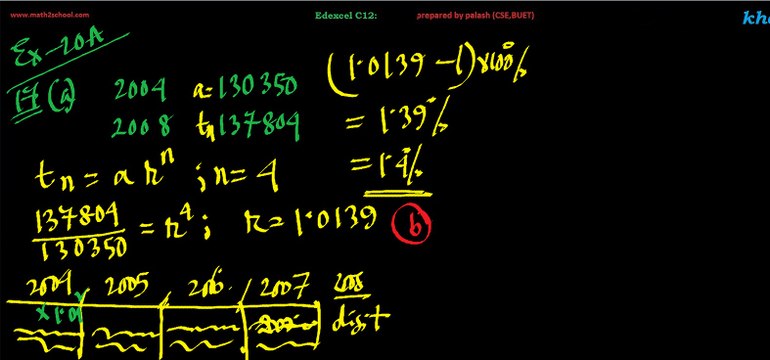 www.math2school.com Edexcel C12: prepared by palash (CSE,BUET) kh
Ex-20A
17 (a) 2004 a=130350
2008 tn 137804
tn = a r^n ; n=4
137804/130350 = r^4 ; r=1.0139
(1.0139-1)×100%
= 1.39%
= 1.4%
b
2004 2005 2006 2007 2008
×1.01 digit